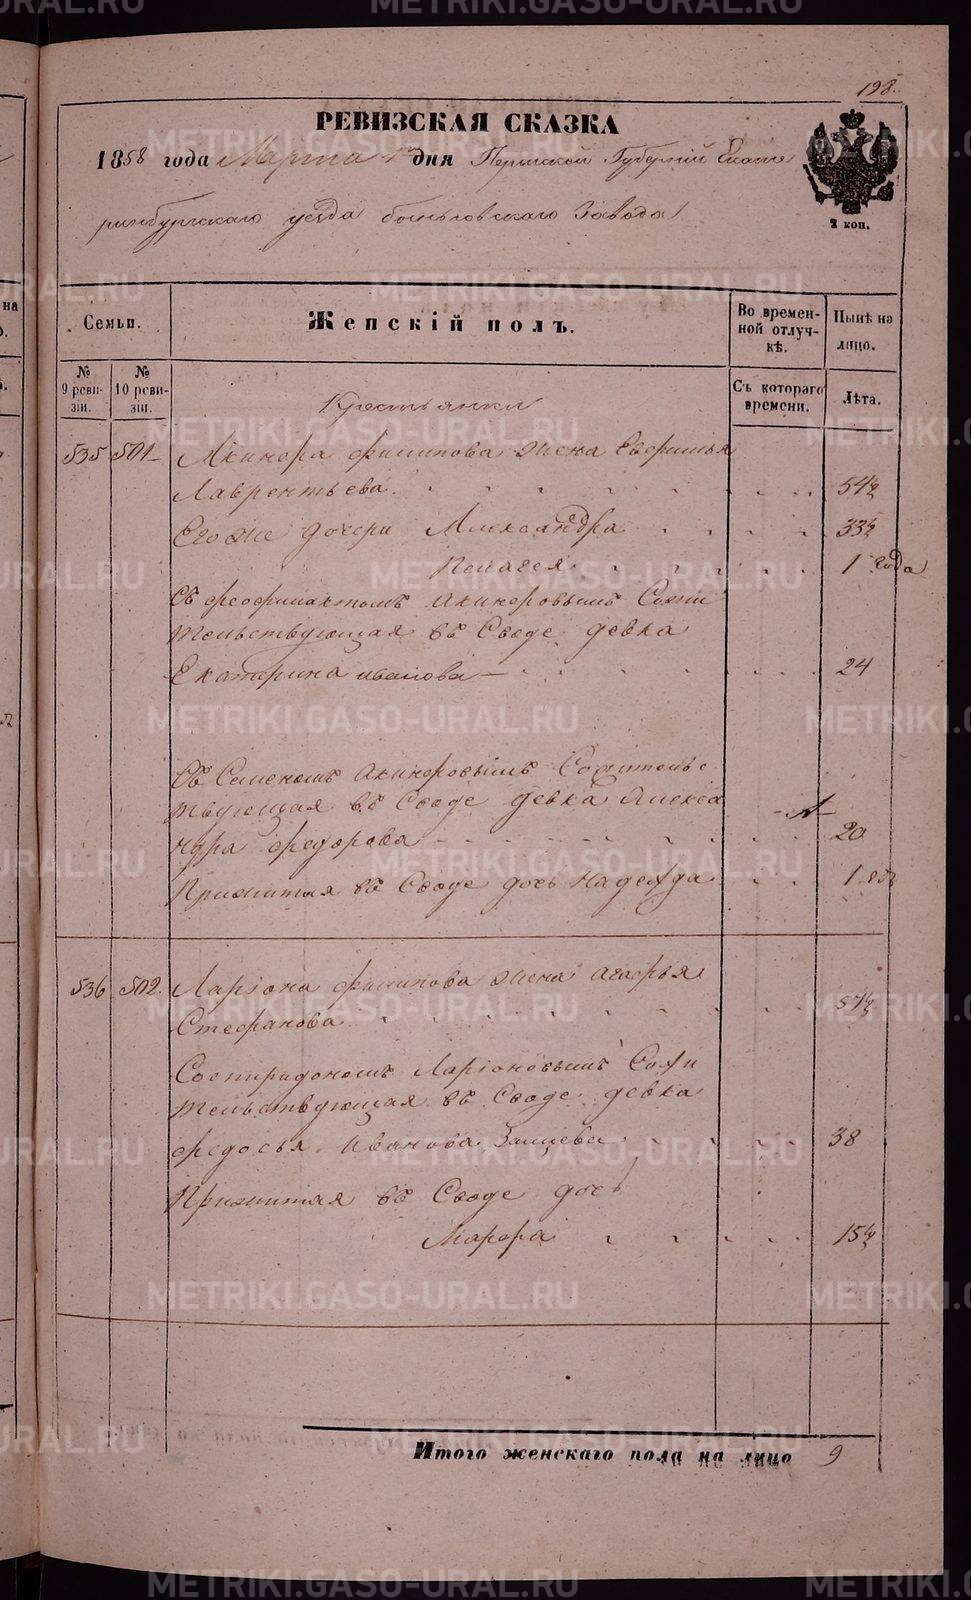 198.
РЕВИЗСКАЯ СКАЗКА
1858 года Марта 1го дня Пермской Губерній Екате
ринбургскаго уезда Боньговскаго Завода
2 коп.
Семьи.
Женскій полъ.
Во времен-
ной отлуч-
кѣ.
Нынѣ на
лицо.
№
9 реви-
зіи.
№
10 реви-
зіи.
Съ котораго
времени.
Лѣта.
Крестьянки
535 501 Акинфа Филипова жена Евфимья
Лаврентьева 54½
Его же дочери Александра 33½
Пелагея 1 года
Съ Феофилактомъ Акинфовымъ Сожи
тельствующая въ Своде девка
Екатерина Иванова 24
Съ Семеномъ Акинфовымъ Сожительс
твующая въ Своде девка Алекса
ндра Федорова 20
Прижитая въ Своде дочь Надежда 1
536 502. Ларіона Филипова жена Агафья
Стефанова 57½
Соспиридономъ Ларіоновымъ Сожи
тельствующая въ Своде девка
Федосья Иванова Зайцева 38
Прижитая въ Своде дочь
Марфа 15½
Итого женскаго пола на лицо 9
METRIKI.GASO-URAL.RU